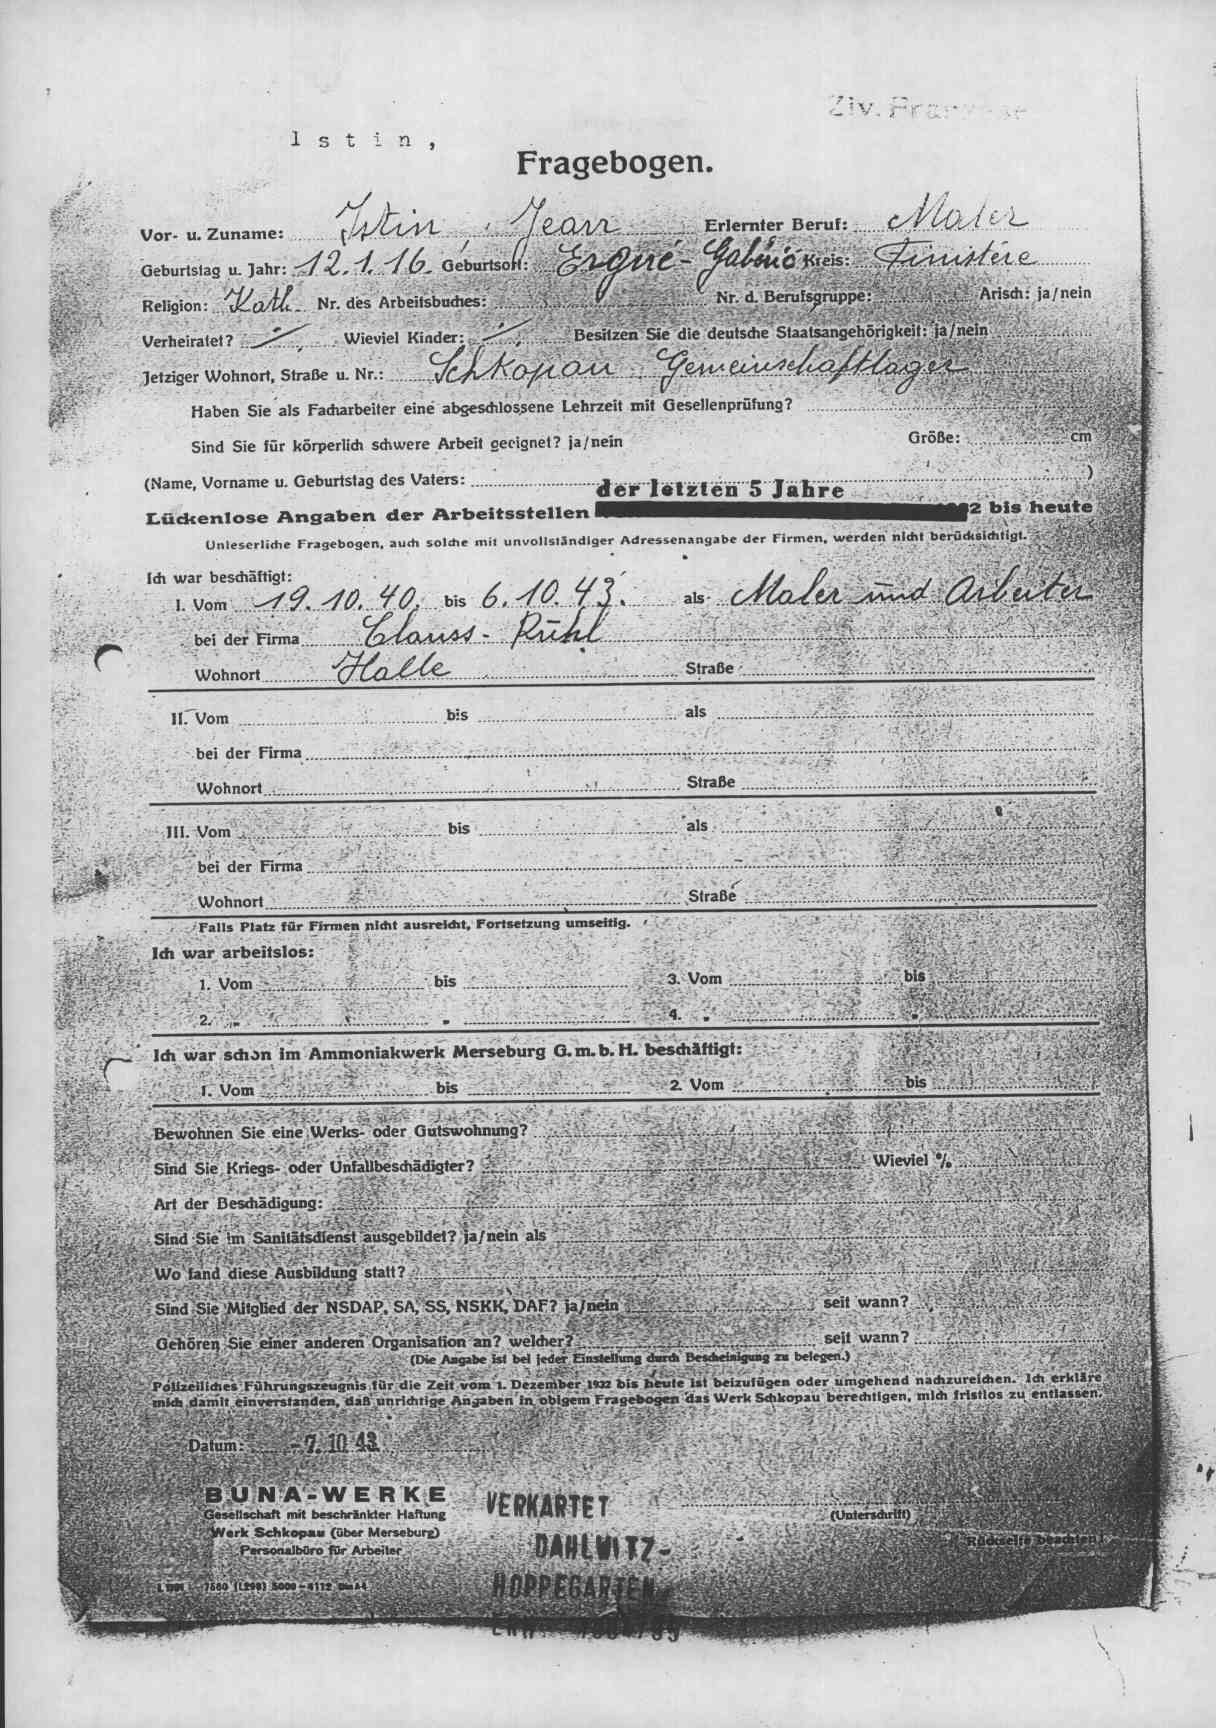 Ziv. Franzose
Istin,
Fragebogen.
Vor- u. Zuname: Istin, Jean Erlernter Beruf: Maler
Geburtstag u. Jahr: 12.1.16. Geburtsort: Ergué-Gabéric Kreis: Finistère
Religion: Kath. Nr. des Arbeitsbuches: Nr. d. Berufsgruppe: Arisch: ja/nein
Verheiratet? Wieviel Kinder: Besitzen Sie die deutsche Staatsangehörigkeit: ja/nein
Jetziger Wohnort, Straße u. Nr.: Schkopau Gemeinschaftlager
Haben Sie als Facharbeiter eine abgeschlossene Lehrzeit mit Gesellenprüfung?
Sind Sie für körperlich schwere Arbeit geeignet? ja/nein Größe: cm
(Name, Vorname u. Geburtstag des Vaters: )
der letzten 5 Jahre
Lückenlose Angaben der Arbeitsstellen 2 bis heute
Unleserliche Fragebogen, auch solche mit unvollständiger Adressenangabe der Firmen, werden nicht berücksichtigt.
Ich war beschäftigt:
I. Vom 19.10.40. bis 6.10.43. als Maler und Arbeiter
bei der Firma Clauss-Rühl
Wohnort Halle Straße
II. Vom bis als
bei der Firma
Wohnort Straße
III. Vom bis als
bei der Firma
Wohnort Straße
Falls Platz für Firmen nicht ausreicht, Fortsetzung umseitig.
Ich war arbeitslos:
1. Vom bis 3. Vom bis
2. „ „ 4. „ „
Ich war schon im Ammoniakwerk Merseburg G.m.b.H. beschäftigt:
1. Vom bis 2. Vom bis
Bewohnen Sie eine Werks- oder Gutswohnung?
Sind Sie Kriegs- oder Unfallbeschädigter? Wieviel %
Art der Beschädigung:
Sind Sie im Sanitätsdienst ausgebildet? ja/nein als
Wo fand diese Ausbildung statt?
Sind Sie Mitglied der NSDAP, SA, SS, NSKK, DAF? ja/nein seit wann?
Gehören Sie einer anderen Organisation an? welcher? seit wann?
(Die Angabe ist bei jeder Einstellung durch Bescheinigung zu belegen.)
Polizeiliches Führungszeugnis für die Zeit vom 1. Dezember 1932 bis heute ist beizufügen oder umgehend nachzureichen. Ich erkläre
mich damit einverstanden, daß unrichtige Angaben in obigem Fragebogen das Werk Schkopau berechtigen, mich fristlos zu entlassen.
Datum: -7.10.43.
BUNA-WERKE
Gesellschaft mit beschränkter Haftung
Werk Schkopau (über Merseburg)
Personalbüro für Arbeiter
VERKARTET
DAHLWITZ-
HOPPEGARTEN
(Unterschrift)
Rückseite beachten!
7500 (L298) 5000-4112 Din A4